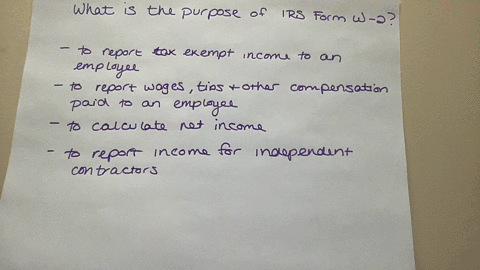 What is the purpose of IRS Form W-2?
- to report tax exempt income to an
employee
- to report wages, tips + other compensation
paid to an employee
- to calculate net income
- to report income for independent
contractors